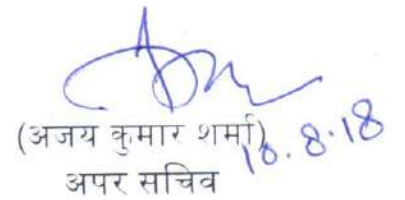 (अजय कुमार शर्मा)
10.8.18
अपर सचिव